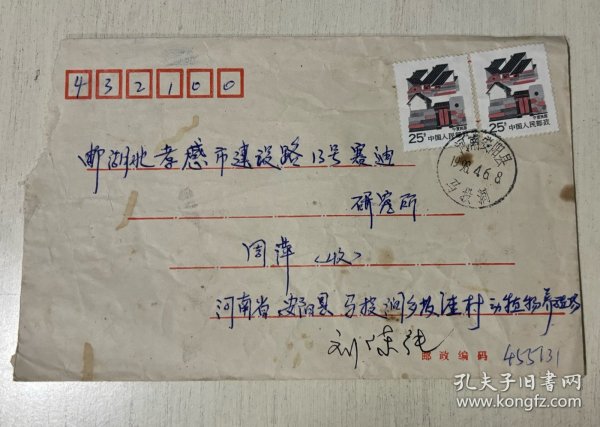 432100
25分 中国人民邮政
25分 中国人民邮政
河南安阳县
4.6.8
马投涧
邮湖北孝感市建设路13号赛迪
研究所
周萍(收)
河南省安阳县马投涧乡坡洼村动植物养殖场
刘
邮政编码 455131
孔夫子旧书网
www.kongfz.com